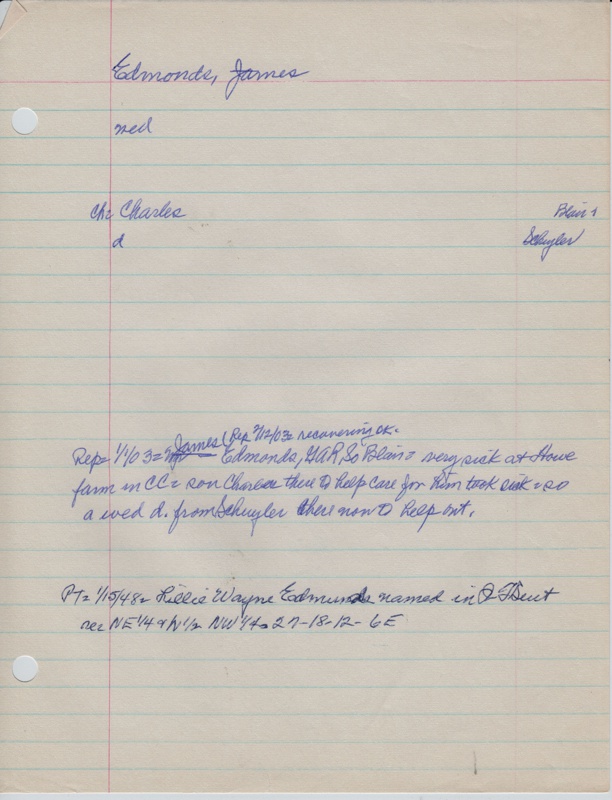 Edmonds, James
wed
ch= Charles
Blair &
d
Schuyler
James (Rep 2/12/03= recovering ok.
Rep= 1/1/03= Edmonds, GAR, So Blair= very sick at Howe
farm in CC= son Charles there to help care for him took sick= so
a wed d. from Schuyler there now to help out.
PT= 1/15/48= Lillie Wayne Edmunds named in Q T Suit
re: NE 1/4 & N 1/2 NW 1/4= 27-18-12-6E